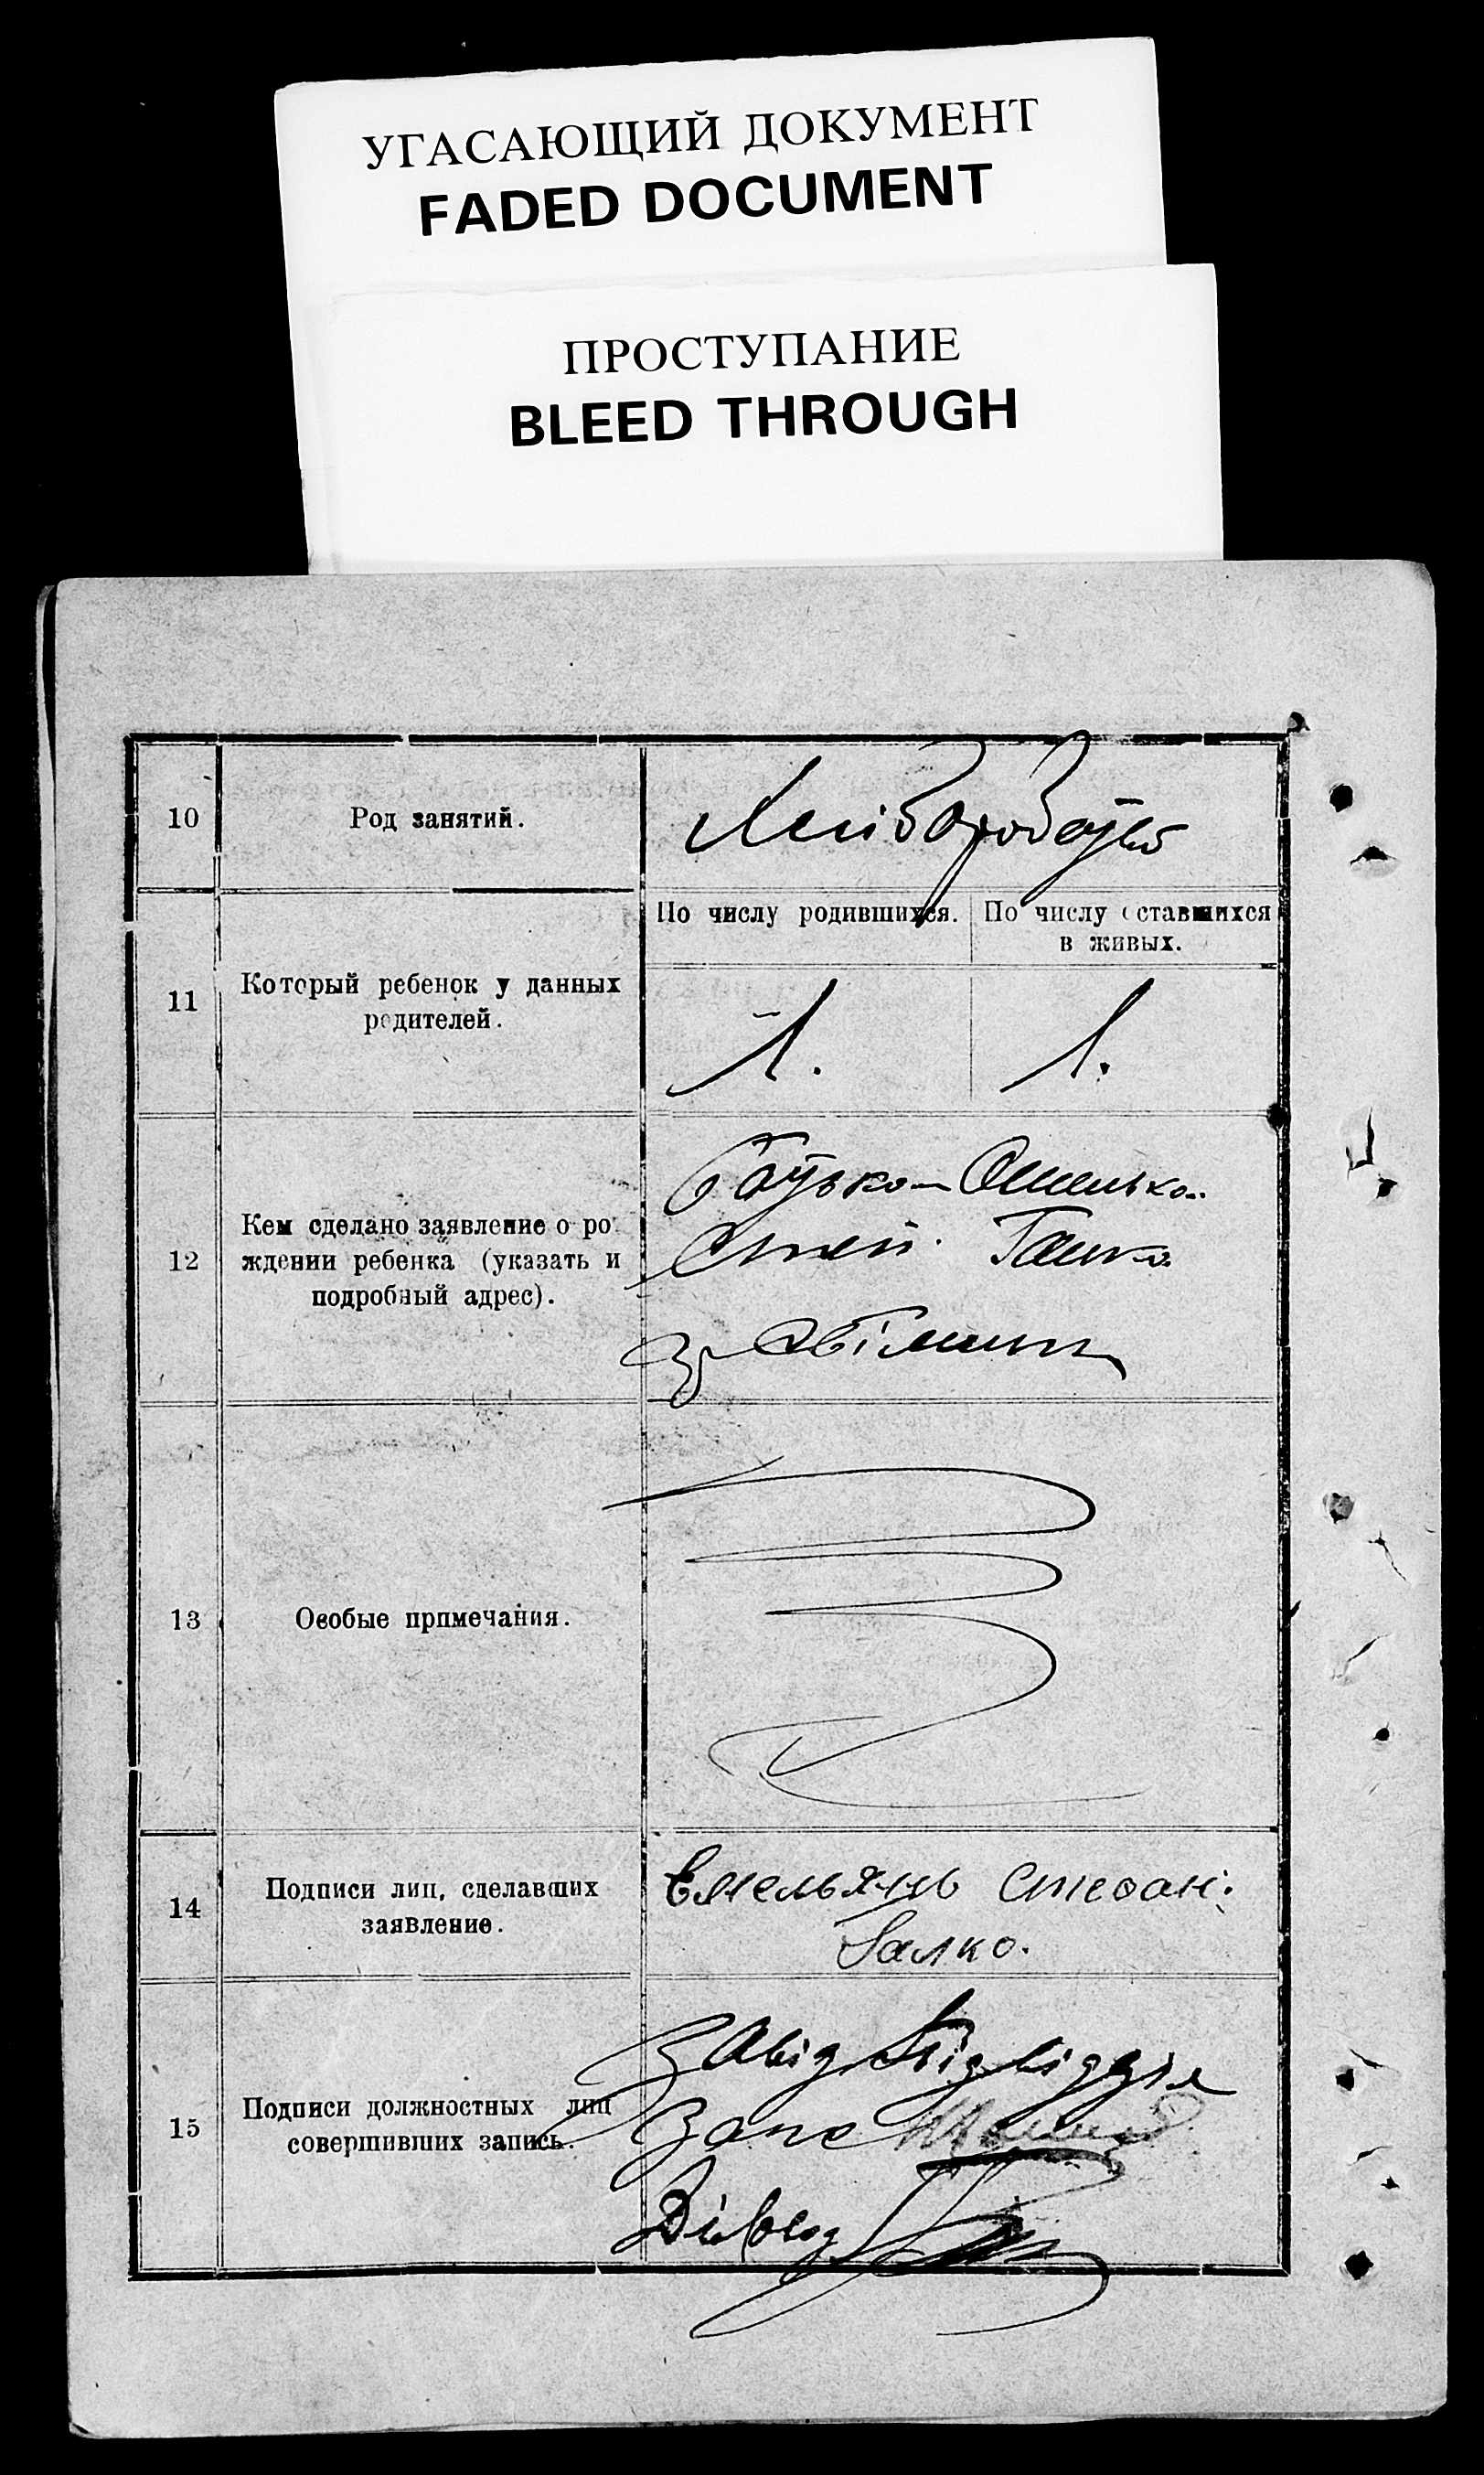 УГАСАЮЩИЙ ДОКУМЕНТ
FADED DOCUMENT
ПРОСТУПАНИЕ
BLEED THROUGH
10 Род занятий. Хлібороботво
11 Который ребенок у данных
родителей.
По числу родившихся.
По числу оставшихся
в живых.
1. 1.
12 Кем сделано заявление о ро
ждении ребенка (указать и
подробный адрес).
Батько
Степ. Галко
13 Особые примечания.
14 Подписи лиц, сделавших
заявление.
Емельянць Стефан.
Галко.
15 Подписи должностных лиц
совершивших запись.
Завід
Діловод